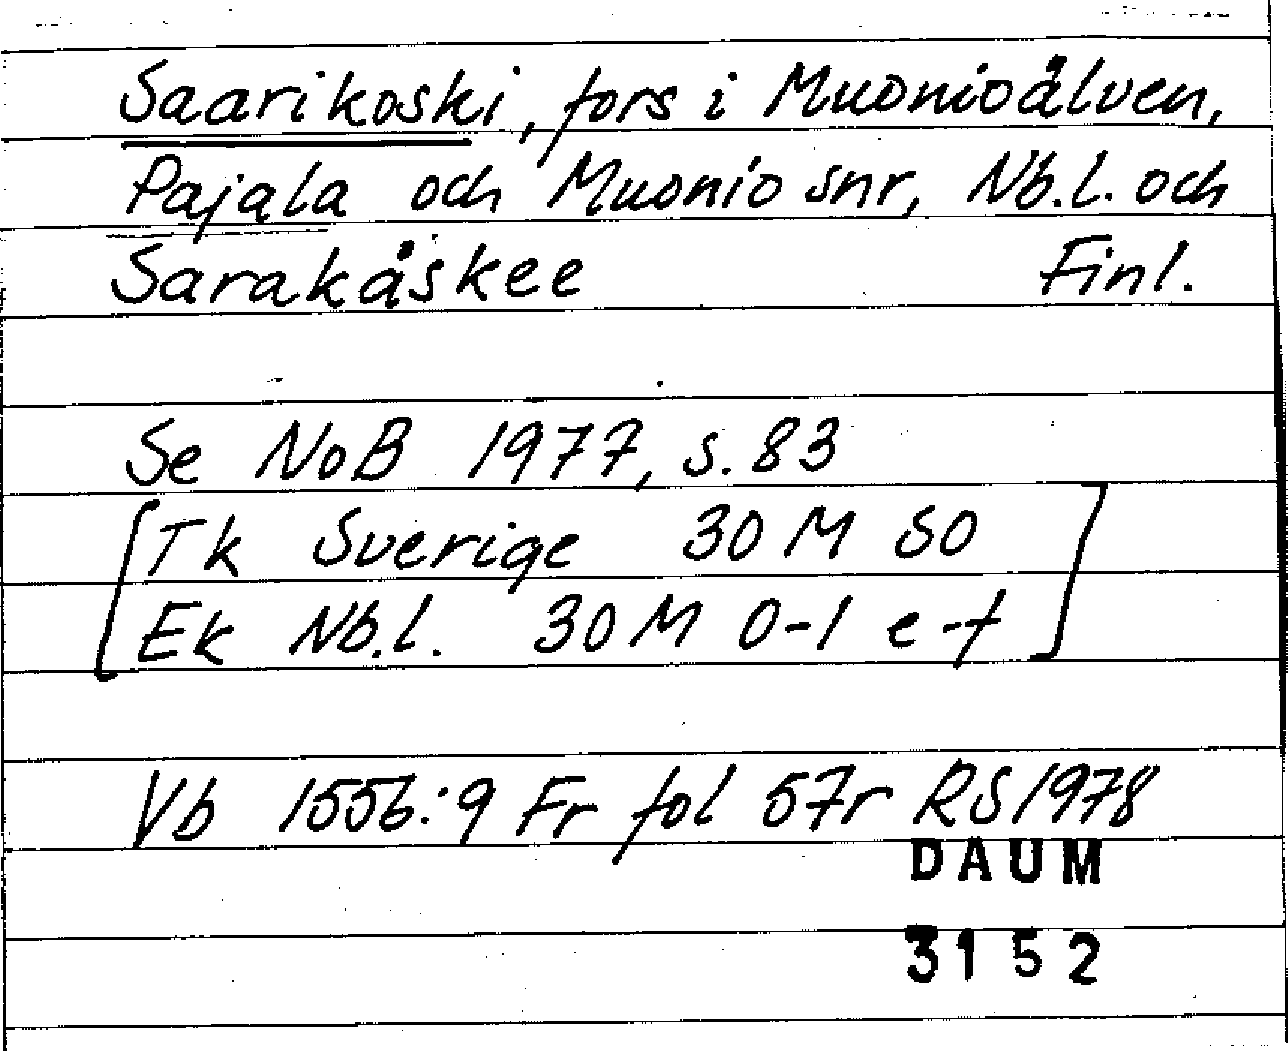 Saarikoski, fors i Muonioälven,
Pajala och Muonio snr, Nb.l. och
Sarakåskee Finl.
Se NoB 1977, s. 83
[Tk Sverige 30 M SO
Ek Nb.l. 30 M 0-1 e-f]
Vb 1556:9 Fr fol 57r RS1978
DAUM
3152